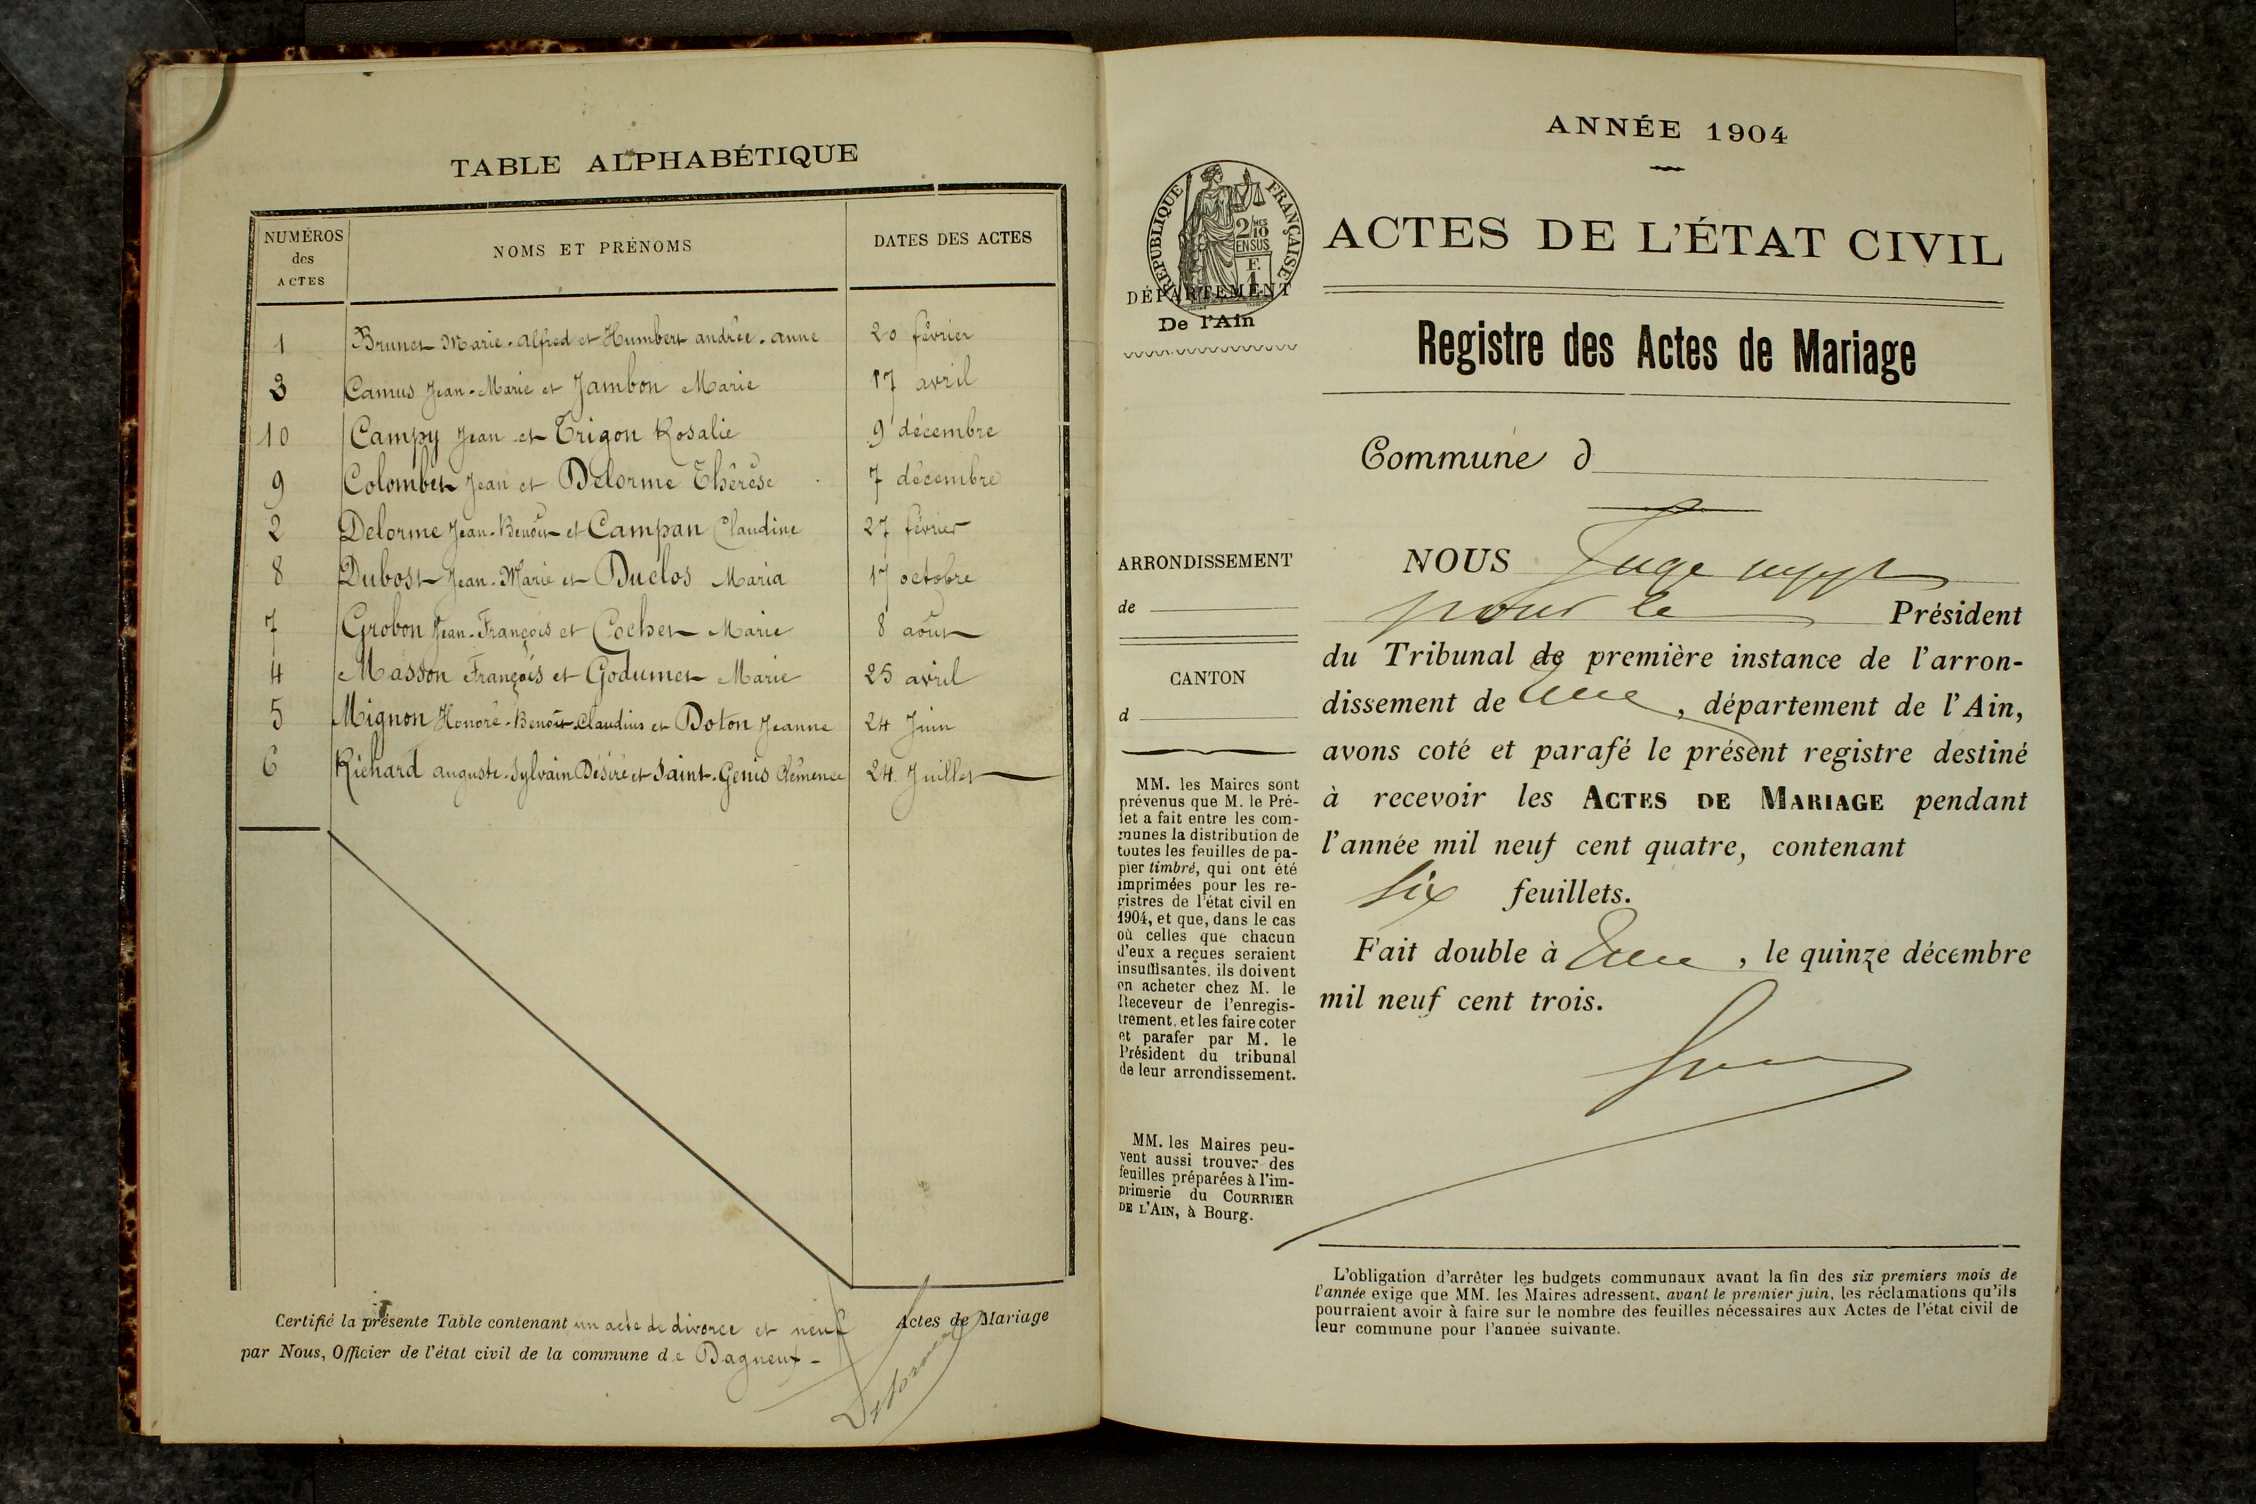 TABLE ALPHABÉTIQUE
NUMÉROS des ACTES
NOMS ET PRÉNOMS
DATES DES ACTES
1 Brunet Marie-Alfred et Humbert andrée-anne 20 février
3 Camus Jean-Marie et Jambon Marie 17 avril
10 Campy Jean et Trigon Rosalie 9 décembre
9 Colombet Jean et Delorme Thérèse 7 décembre
2 Delorme Jean-Benoît et Campan Claudine 27 février
8 Dubost Jean-Marie et Duclos Maria 17 octobre
7 Grobon Jean-François et Cochet Marie 8 août
4 Masson François et Godumet Marie 25 avril
5 Mignon Honoré-Benoît-Claudius et Doton Jeanne 24 Juin
6 Richard auguste-Sylvain Désiré et Saint-Genis Clémence 24 Juillet
Certifié la présente Table contenant un acte de divorce et neuf Actes de Mariage
par Nous, Officier de l'état civil de la commune de Dagneux
Delorme
ANNÉE 1904
RÉPUBLIQUE FRANÇAISE
2/10 MES
EN SUS
F.
1
DÉPARTEMENT
De l'Ain
ACTES DE L'ÉTAT CIVIL
Registre des Actes de Mariage
Commune d
ARRONDISSEMENT
de
CANTON
d
MM. les Maires sont
prévenus que M. le Pré-
fet a fait entre les com-
munes la distribution de
toutes les feuilles de pa-
pier timbré, qui ont été
imprimées pour les re-
gistres de l'état civil en
1904, et que, dans le cas
où celles que chacun
d'eux a reçues seraient
insuffisantes, ils doivent
en acheter chez M. le
Receveur de l'enregis-
trement, et les faire coter
et parafer par M. le
Président du tribunal
de leur arrondissement.
MM. les Maires peu-
vent aussi trouver des
feuilles préparées à l'im-
primerie du COURRIER
DE L'AIN, à Bourg.
NOUS Juge suppt
pour le Président
du Tribunal de première instance de l'arron-
dissement de , département de l'Ain,
avons coté et parafé le présent registre destiné
à recevoir les ACTES DE MARIAGE pendant
l'année mil neuf cent quatre, contenant
Six feuillets.
Fait double à , le quinze décembre
mil neuf cent trois.
L'obligation d'arrêter les budgets communaux avant la fin des six premiers mois de
l'année exige que MM. les Maires adressent, avant le premier juin, les réclamations qu'ils
pourraient avoir à faire sur le nombre des feuilles nécessaires aux Actes de l'état civil de
leur commune pour l'année suivante.